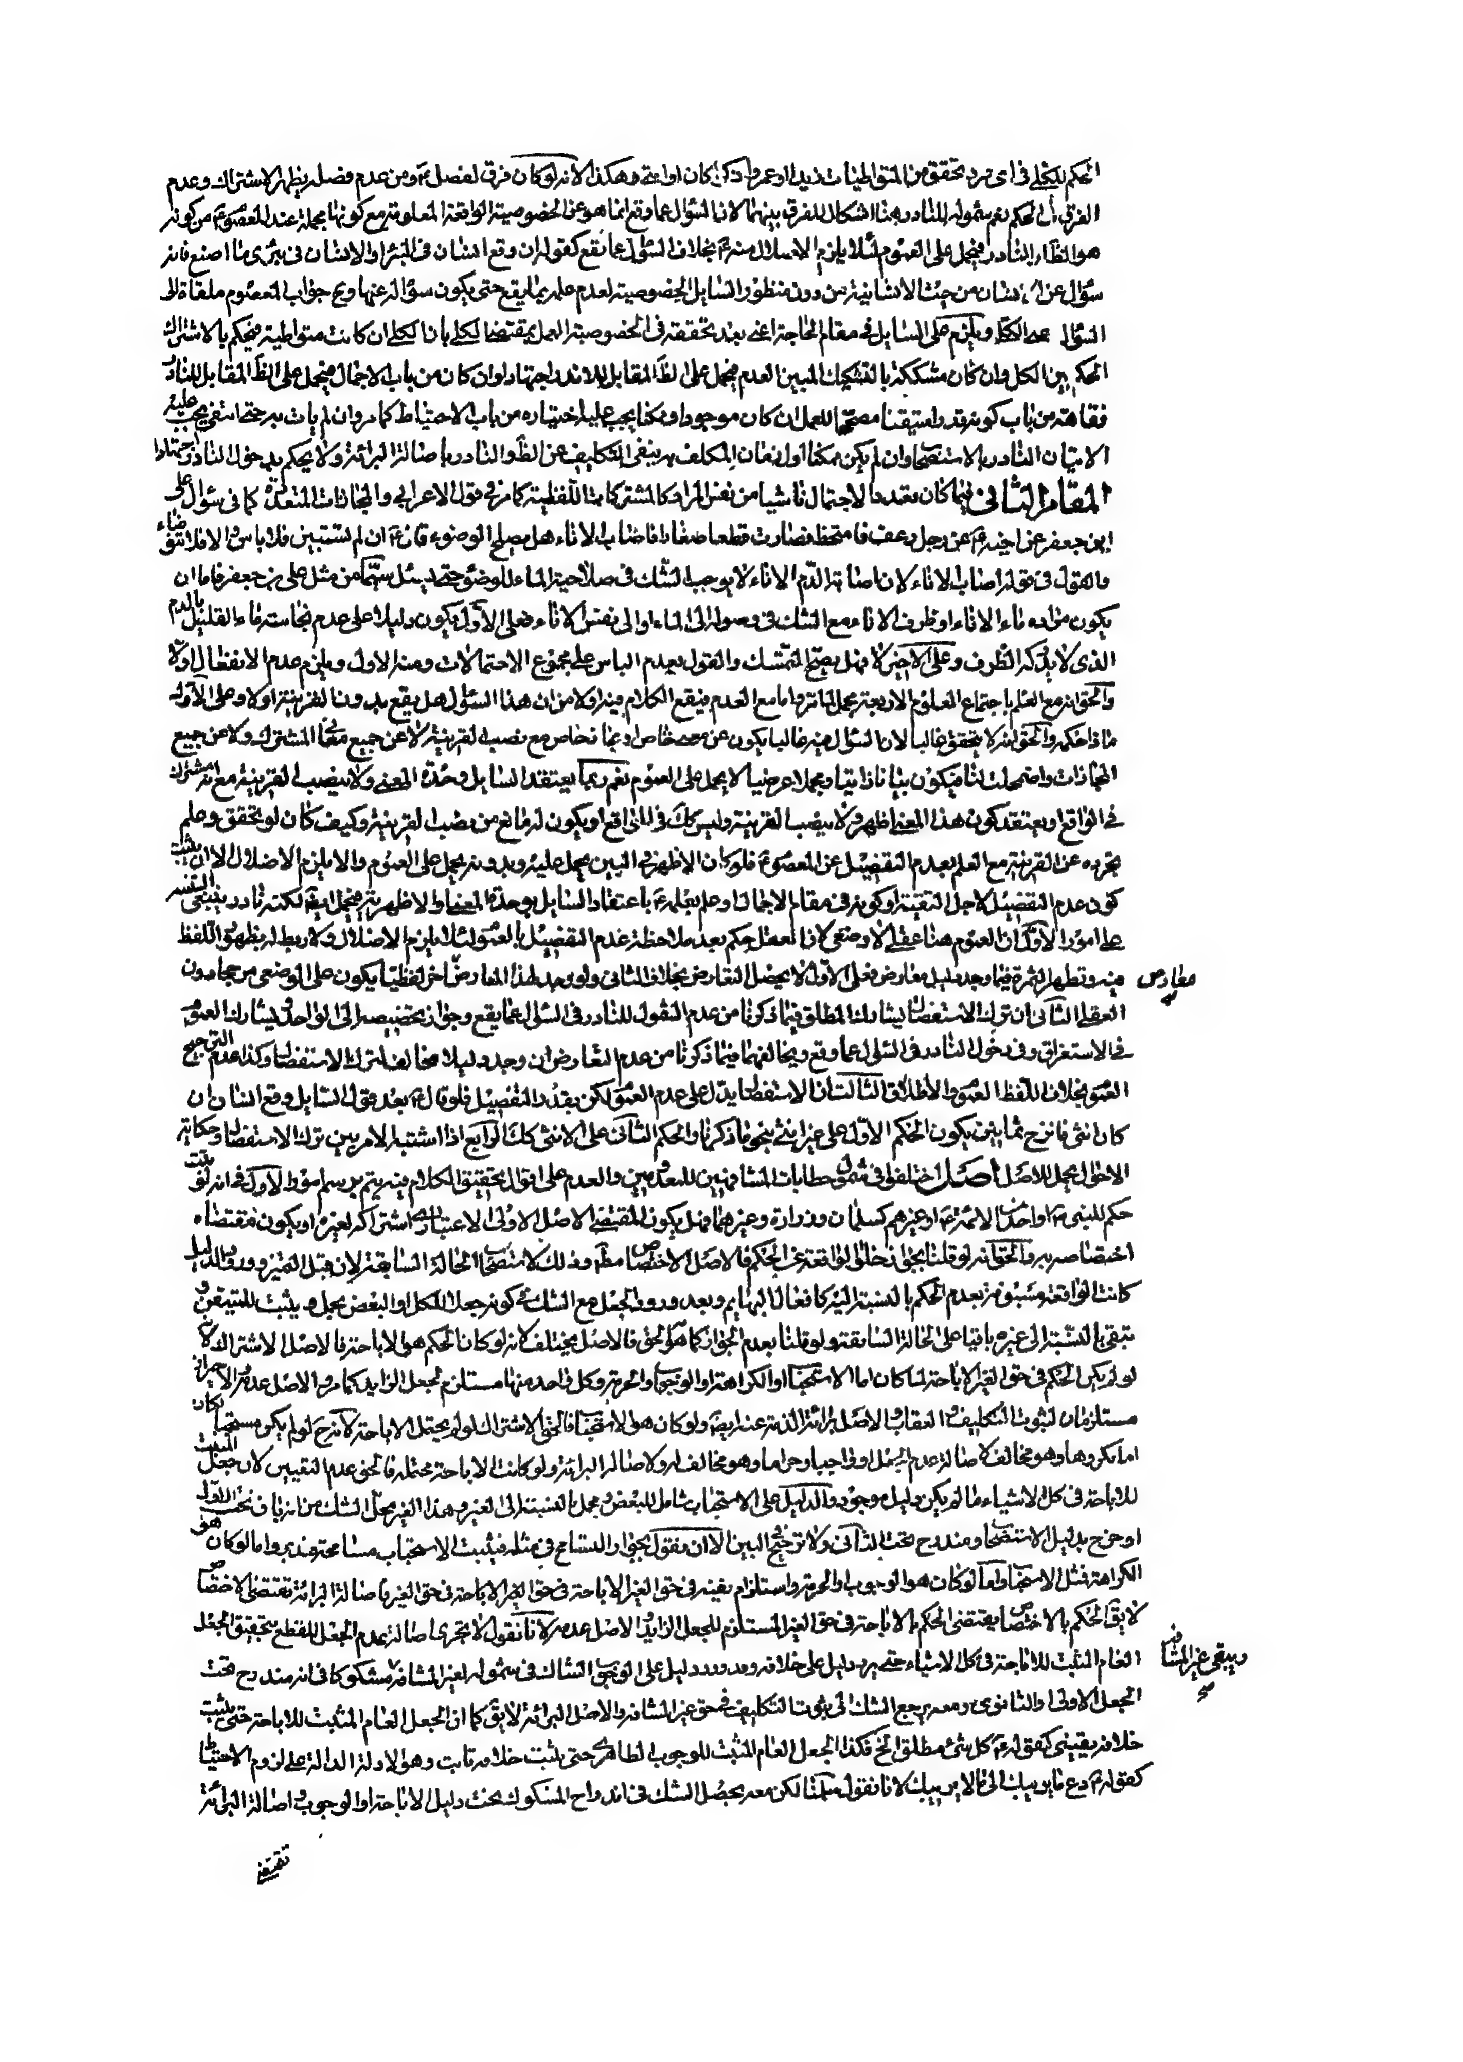 الحكم للكلي فى اى فرد تحقق من المتوالجينات زيدا او عمرو ذكرا كان او انثى وهكذا لانه لو كان فرق لفصل ع ومن عدم فصله يظهر الاشتراك وعدم
الفرق فى الحكم نعم شموله للنادر هنا اشكال للفرق بينهما لان السؤال عما وقع انما هو عن الخصوصية الواقعة المعلومة مع كونها مجملة عند المعصوم ع من كونه
هو الظاهر النادر فيحمل على العموم لئلا يلزم الاضلال منه ع بخلاف السؤال عما يقع كقوله ان وقع انسان فى البئر او الانسان فى بئرى ما اصنع فانه
سؤال عن الانسان من حيث الانسانية من دون منظور السايل الخصوصية لعدم علمه بما يقع حتى يكون سؤاله عنها وح جواب المعصوم ملقاة الى
السؤال عن الكلى ويلزم على السايل فى مقام الحاجة اعنى بعد تحققه فى الخصوصية العمل بمقتضا الكلى بان الكلى ان كانت متواطية فيحكم بالاشتراك
الحكم بين الكل وان كان مشككة بالتشكيك المبين العدم فيحمل على الظ المقابل للنادر اجتهادا وان كان من باب الاجمال فيحمل على الظ المقابل للنادر
فقاهة من باب كونه قدرا متيقنا مصححا للعمل ان كان موجودا وممكنا يجب عليه اختياره من باب الاحتياط كما مر وان لم يات به حتى انتفى يجب عليه
الاتيان النادر بالاستصحاب وان لم يكن ممكنا اول زمان المكلف به ينفى التكليف عن الظ والنادر باصالة البرائة ولا يحكم بدخول النادر اجتهادا
المقام الثانى فيما كان بعد الاحتمال ناشيا من نفس المراد كالمشتركات اللفظية كما مر فى قول الاعرابى والمجازات المتعددة كما فى سؤال على
ابن جعفر عن اخيه ع عن رجل رعف فامتخط فصارت قطعا صغارا فاصاب الاناء هل يصلح الوضوء قال ع ان لم تستبين فلا باس والا فلا تتوضاء
والقول فى قوله اصاب الاناء لان اصابة الدم الاناء لا يوجب الشك فى صلاحية الماء للوضوء حتى يسئل سيما من مثل على بن جعفر فاما ان
يكون مراده ماء الاناء او ظرف الاناء مع الشك فى وصوله الى الماء او الى نفس الاناء فعلى الاول يكون دليلا على عدم نجاسة ماء القليل بالدم
الذى لا يدركه الطرف وعلى الاخير لا فهل يصح التمسك والقول بعدم الباس على مجموع الاحتمالات ومنه الاول ويلزم عدم الانفعال اولا
والحق انه مع العلم باجتماع العلوم الاربعة يحمل اما مع العدم فيقع الكلام فيه اولا من ان هذا السؤال هل يقع بدون القرينة اولا وعلى الاول
ماذا حكمه والحق انه لا يتحقق غالبا لان السؤال فيه غالبا يكون عن معنى خاص او مجاز خاص مع نصب القرينة لا عن جميع معانى المشترك ولا عن جميع
المجازات واضمحلت لنا فيكون بيانا ذاتيا ومجملا عرضيا لا يحمل على العموم نعم ربما يعتقد السايل وحدة المعنى ولا ينصب القرينة مع انه مشترك
فى الواقع او يعتقد كون هذا المعنى اظهر ولا ينصب القرينة وليس كك فى الواقع او يكون له مانع من نصب القرينة وكيف كان لو تحقق وعلم
تجرده عن القرينة مع العلم بعدم التفضيل عن المعصوم ع فلو كان الاظهر فى البين يحمل عليه وبدونه يحمل على العموم والا يلزم الاضلال الا ان يثبت
كون عدم التفضيل لاجل التقية او كونه فى مقام الاجمال او علم بعلمه ع باعتقاد السايل بوحدة المعنى والاظهرية فيحمل ايضا لكنه نادر ينبغى التنبيه
على امور الاول ان العموم هنا عقلى لا وضعى لان العقل حكم بعد ملاحظة عدم التفضيل بالعموم لئلا يلزم الاضلال ولا ربط له بظهور اللفظ
فيه وتظهر الثمرة فيما وجد دليل معارض فعلى الاول لا يحصل التعارض بخلاف الثانى ولو وجد لهذا المعارض معارض اخر لفظيا يكون على الوضعى مرجحا دون
العقلى الثانى ان ترك الاستفصال يشارك المطلق فيما ذكرنا من عدم الشمول للنادر فى السؤال عما يقع وجواز تخصيصه الى الواحد ويشارك العموم
فى الاستغراق وفى دخول النادر فى السؤال عما وقع ويخالفهما فيما ذكرنا من عدم التعارض ان وجد دليلا مخالفا لترك الاستفصال وكذا عدم الترجيح
العموم بخلاف اللفظ العموم والاطلاق الثالث ان الاستفصال يدل على عدم العموم لكن بقدر التفصيل فلو قال ع بعد قول السايل وقع انسان ان
كان انثى فانزح ثمانين يكون الحكم الاول على غير انثى بنحو ما ذكرنا والحكم الثانى على الانثى كك الرابع اذا اشتبه الامر بين ترك الاستفصال وحكاية
الاحوال يحمل للاصل اصل اختلفوا فى شمول خطابات المشافهين للمعدومين والعدم على اقوال تحقيق الكلام فيه يتم برسم امور الاول فى انه لو ثبت
حكم للنبى ص او احد من الائمة ع او غيرهم كسلمان وزرارة وغيرهما فهل يكون المقتضى الاصل الاولى الاعتبارى اشتراكه لغيره او يكون مقتضاه
اختصاصه به والحق انه لو قلنا بجواز خلو الواقعة عن الحكم فالاصل الاختصاص مط وذلك لاستصحاب الحالة السابقة لان قبل التمييز وورود الدليل
كانت الواقعة مسبوقة بعدم الحكم بالنسبة اليه كافعال البهايم وبعد ورود الجعل مع الشك فى كونه جعل للكل او البعض يحمل ويثبت للمتيقن و
تبقى بالنسبة الى غيره باقيا على الحالة السابقة ولو قلنا بعدم الجواز كما هو الحق فالاصل يختلف لانه لو كان الحكم هو الاباحة فالاصل الاشتراك لانه
لو لم يكن الحكم فى حق الغير الاباحة لما كان اما الاستحباب او الكراهة او الوجوب او الحرمة وكل واحد منها مستلزم لجعل الزايد كما مر والاصل عدمه والاخيران
مستلزمان لثبوت التكليف والعقاب والاصل برائة الذمة عنه ايضا ولو كان هو الاستحباب فالحق الاشتراك لو لم يحتمل الاباحة لانه ح لو لم يكن مستحبا لكان
اما مكروها وهو مخالف لاصالة عدم الجعل او واجبا وحراما وهو مخالف له ولاصالة البرائة ولو كانت الاباحة محتملة فالحق عدم التعيين لان جعل المثبت
للاباحة فى كل الاشياء ما لم يكن دليل موجود والدليل على الاستحباب شامل للبعض ومجمل بالنسبة الى الغير وهذا الغير محل الشك من انه باق تحت الاول
او خرج بدليل الاستصحاب ومندرج تحت الثانى ولا ترجيح فى البين الا ان نقول بجواز التسامح فى مثله فيثبت الاستحباب مسامحة فتدبر واما لو كان هو
الكراهة فمثل الاستحباب واما لو كان هو الوجوب او الحرمة واستلزام نفيه فى حق الغير الاباحة فى حق الغير فاصالة البرائة تقتضى الاختصاص
لا يق الحكم بالاختصاص يقتضى الحكم بالاباحة فى حق الغير المستلزم للجعل الزايد والاصل عدمه لانا نقول لا تجرى اصالة عدم الجعل للقطع بتحقيق الجعل
العام المثبت للاباحة فى كل الاشياء حتى يرد دليل على خلافه وورود دليل على الوجوب الشاك فى شموله لغير المشافه ويبقى غير المشافه مشكوكا فى انه مندرج تحت
الجعل الاولى او الثانوى ومعه يرجع الشك الى ثبوت التكليف فى حق غير المشافه والاصل البرائة لا يق كما ان الجعل العام المثبت للاباحة حتى يثبت
خلافه يقينى كقوله ع كل شئ مطلق الخ فكذا الجعل العام المثبت للوجوب الظاهرى حتى يثبت خلافه ثابت وهو الادلة الدالة على لزوم الاحتياط
كقوله ع دع ما يريبك الى ما لا يريبك لانا نقول سلمنا لكن معه يحصل الشك فى اندراج المشكوك تحت دليل الاباحة او الوجوب واصالة البرائة